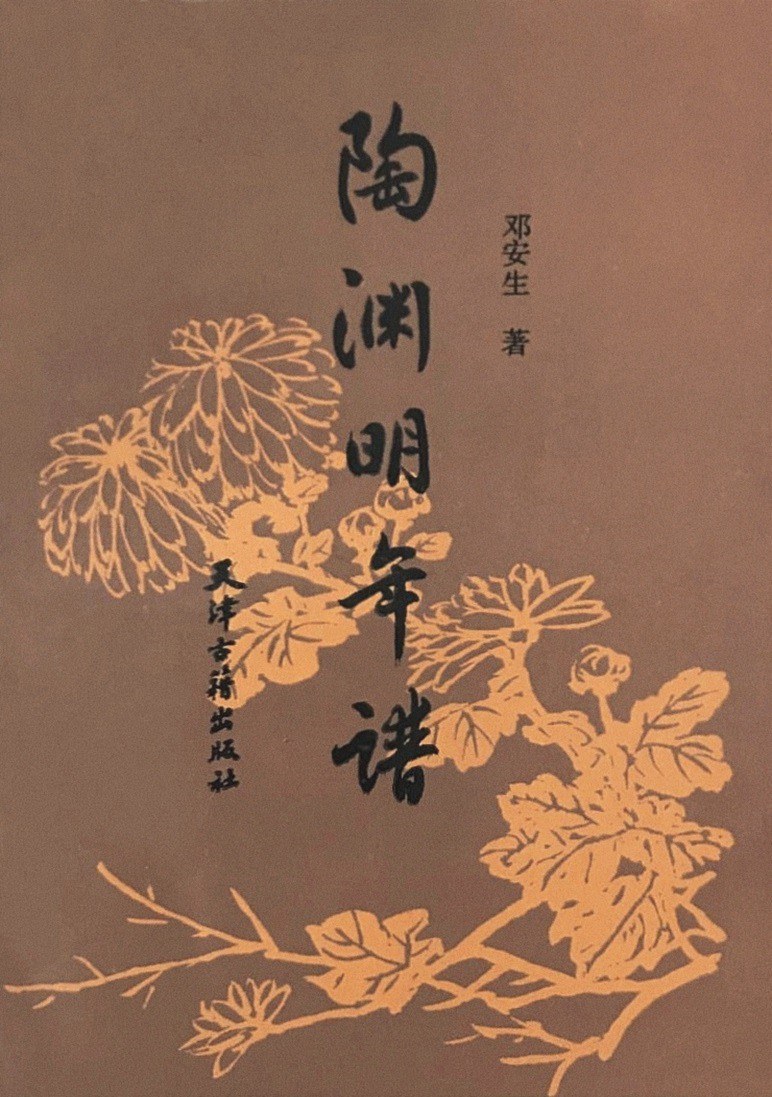 邓安生 著
陶渊明年谱
天津古籍出版社